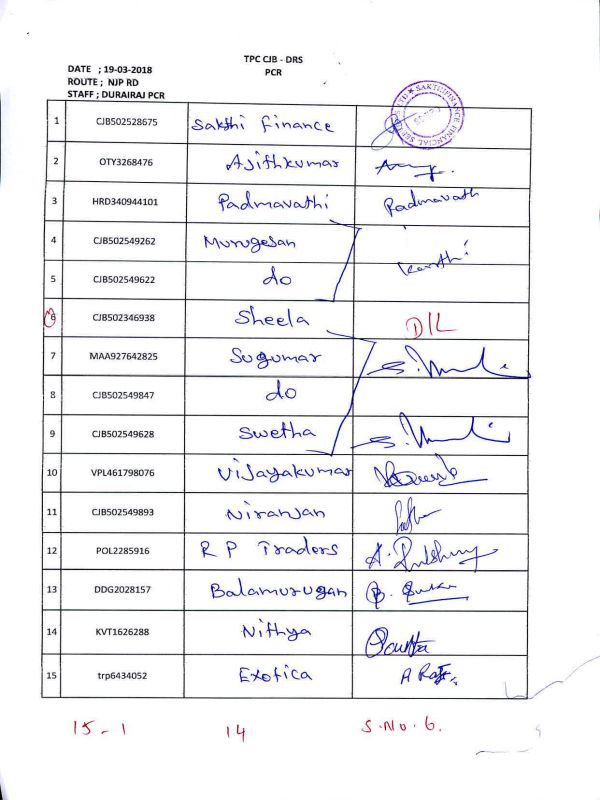 TPC CJB - DRS
PCR
DATE ; 19-03-2018
ROUTE ; NJP RD
STAFF ; DURAIRAJ PCR
SAKTHI FINANCE FINANCIAL SERVICES LTD
1 CJB502528675 Sakthi Finance
2 OTY3268476 Ajithkumar
3 HRD340944101 Padmavathi Padmavath
4 CJB502549262 Murugesan
5 CJB502549622 do Karthi
6 CJB502346938 Sheela D/L
7 MAA927642825 Sugumar
8 CJB502549847 do
9 CJB502549628 Swetha
10 VPL461798076 Vijayakumar
11 CJB502549893 Niranjan
12 POL2285916 R P Traders
13 DDG2028157 Balamurugan
14 KVT1626288 Nithya
15 trp6434052 Exotica
15 - 1 14 S.No. 6.